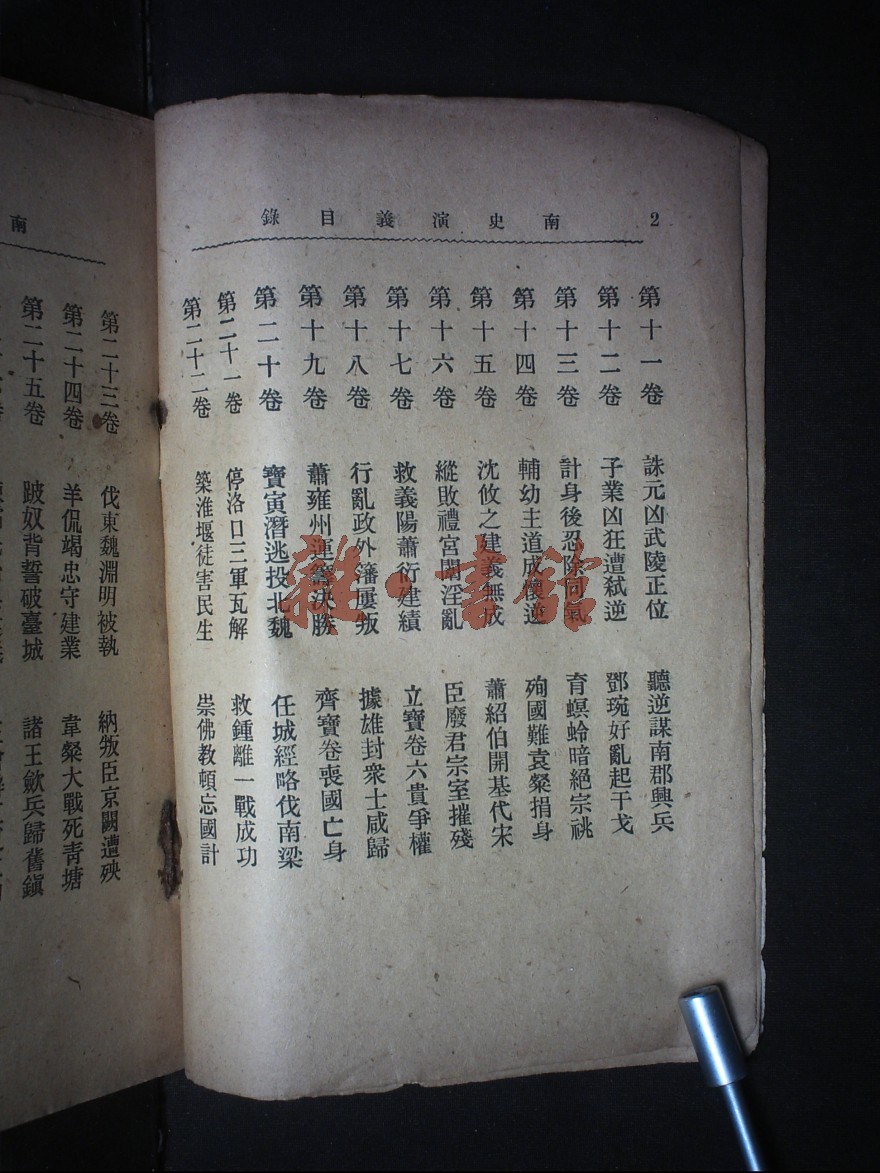 南史演義目錄 2
第十一卷 誅元凶武陵正位 聽逆謀南郡興兵
第十二卷 子業凶狂遭弒逆 鄧琬好亂起干戈
第十三卷 計身後忍除同氣 育螟蛉暗絕宗祧
第十四卷 輔幼主道成懷逆 殉國難袁粲捐身
第十五卷 沈攸之建義無成 蕭紹伯開基代宋
第十六卷 縱敗禮宮闈淫亂 臣廢君宗室摧殘
第十七卷 救義陽蕭衍建績 立寶卷六貴爭權
第十八卷 行亂政外藩屢叛 據雄封衆士咸歸
第十九卷 蕭雍州運籌決勝 齊寶卷喪國亡身
第二十卷 寶寅潛逃投北魏 任城經略伐南梁
第二十一卷 停洛口三軍瓦解 救鍾離一戰成功
第二十二卷 築淮堰徒害民生 崇佛教頓忘國計
南
第二十三卷 伐東魏淵明被執 納叛臣京闕遭殃
第二十四卷 羊侃竭忠守建業 韋粲大戰死青塘
第二十五卷 跛奴背誓破臺城 諸王斂兵歸舊鎮
雜·書館